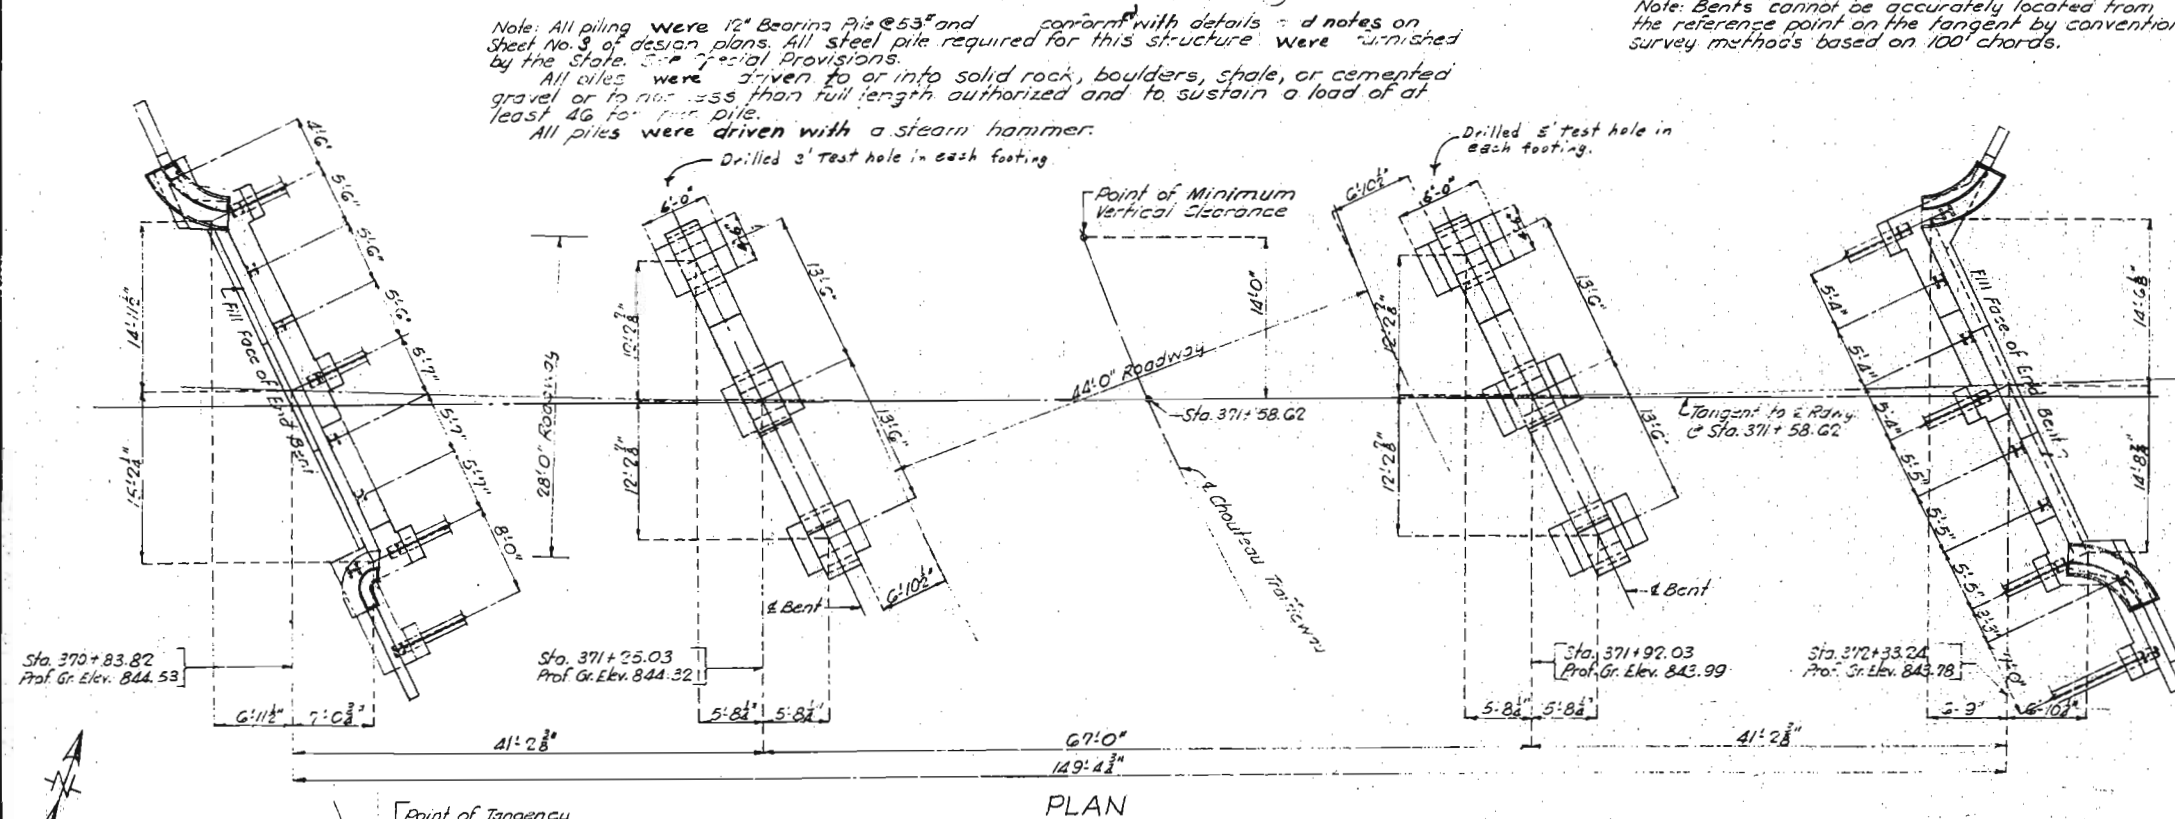 Note: All piling were 12" Bearing Pile @ 53# and conform with details and notes on
Sheet No. 3 of design plans. All steel pile required for this structure were furnished
by the State. See Special Provisions.
All piles were driven to or into solid rock, boulders, shale, or cemented
gravel or to not less than full length authorized and to sustain a load of at
least 46 pile.
All piles were driven with a steam hammer.
Note: Bents cannot be accurately located from
the reference point on the tangent by convention
survey methods based on 100' chords.
Drilled 3' Test hole in each footing.
Drilled 5' Test hole in
each footing.
Point of Minimum
Vertical Clearance
4'-6"
5'-6"
5'-6"
5'-6"
5'-7"
5'-7"
5'-7"
8'-0"
14'-11½"
15'-2¼"
Fill Face of End Bent
28'-0" Roadway
6'-0"
13'-6"
13'-6"
12'-2⅞"
12'-2⅞"
6'-10½"
₵ Bent
14'-0"
44'-0" Roadway
Sta. 371+58.62
₵ Chouteau Trafficway
6'-10½"
13'-6"
13'-6"
12'-2⅞"
12'-2⅞"
₵ Bent
Tangent to ₵ Rdwy.
@ Sta. 371+58.62
Fill Face of End Bent
5'-4"
5'-4"
5'-4"
5'-5"
5'-5"
5'-5"
2'-3"
14'-6⅛"
Sta. 370+83.82
Prof. Gr. Elev. 844.53
Sta. 371+25.03
Prof. Gr. Elev. 844.32
Sta. 371+92.03
Prof. Gr. Elev. 843.99
Sta. 372+33.24
Prof. Gr. Elev. 843.78
6'-11½"
7'-0¾"
5'-8¼"
5'-8¼"
5'-8¼"
5'-8¼"
6'-9"
6'-10¼"
41'-2⅜"
67'-0"
41'-2⅜"
149'-4¾"
N
Point of Tangency
PLAN